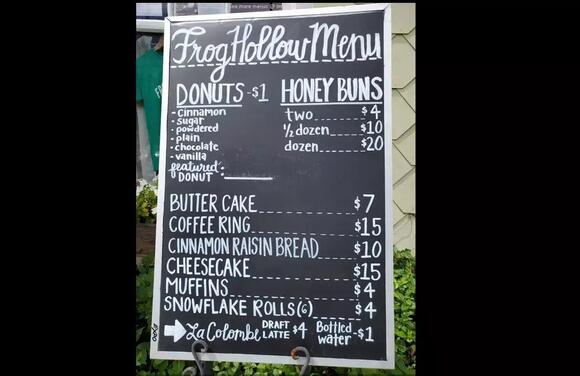 Frog Hollow Menu
DONUTS -$1
- cinnamon
- sugar
- powdered
- plain
- chocolate
- vanilla
featured:
DONUT
HONEY BUNS
two $4
½ dozen $10
dozen $20
BUTTER CAKE $7
COFFEE RING $15
CINNAMON RAISIN BREAD $10
CHEESECAKE $15
MUFFINS $4
SNOWFLAKE ROLLS (6) $4
La Colombe DRAFT LATTE $4 Bottled water -$1